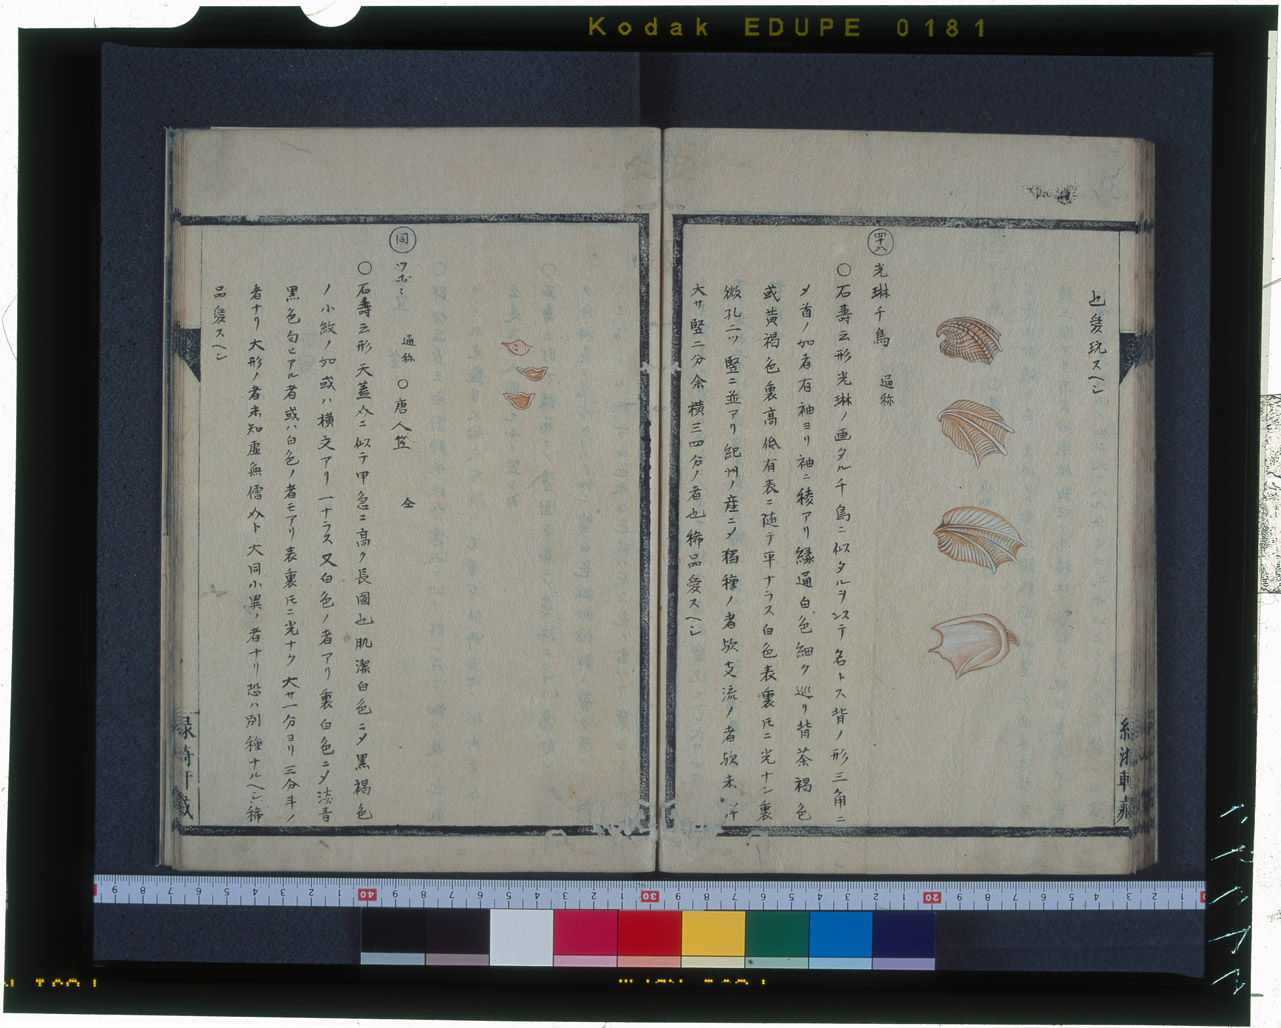 Kodak EDUPE 0181
也愛玩スヘシ
四十八
光琳千鳥 通称
○石壽云形光琳ノ画タル千鳥ニ似タルヲ以テ名トス背ノ形三角ニ
〆首ノ如者右袖ヨリ袖ニ稜アリ縁通白色細ク巡リ背茶褐色
或黄褐色裏高低有表ニ随テ平ナラス白色表裏圧ニ光ナシ裏
微孔二ツ竪ニ並アリ紀州ノ産ニ〆獨種ノ者欤支流ノ者欤未詳
大サ竪二分余横三四分ノ者也稀品愛スヘシ
同
ツボミ 通称 ○唐人笠 仝
○石壽云形天蓋メニ似テ甲急ニ高ク長圓也肌潔白色ニ〆黒褐色
ノ小紋ノ如或ハ横文アリ一ナラス又白色ノ者アリ裏白色ニ〆淡青
黒色匂ヒアル者或ハ白色ノ者モアリ表裏圧ニ光ナク大サ一分ヨリ三分半ノ
者ナリ大形ノ者未知虚無僧メト大同小異ノ者ナリ恐ハ別種ナルヘシ稀
品愛スヘシ